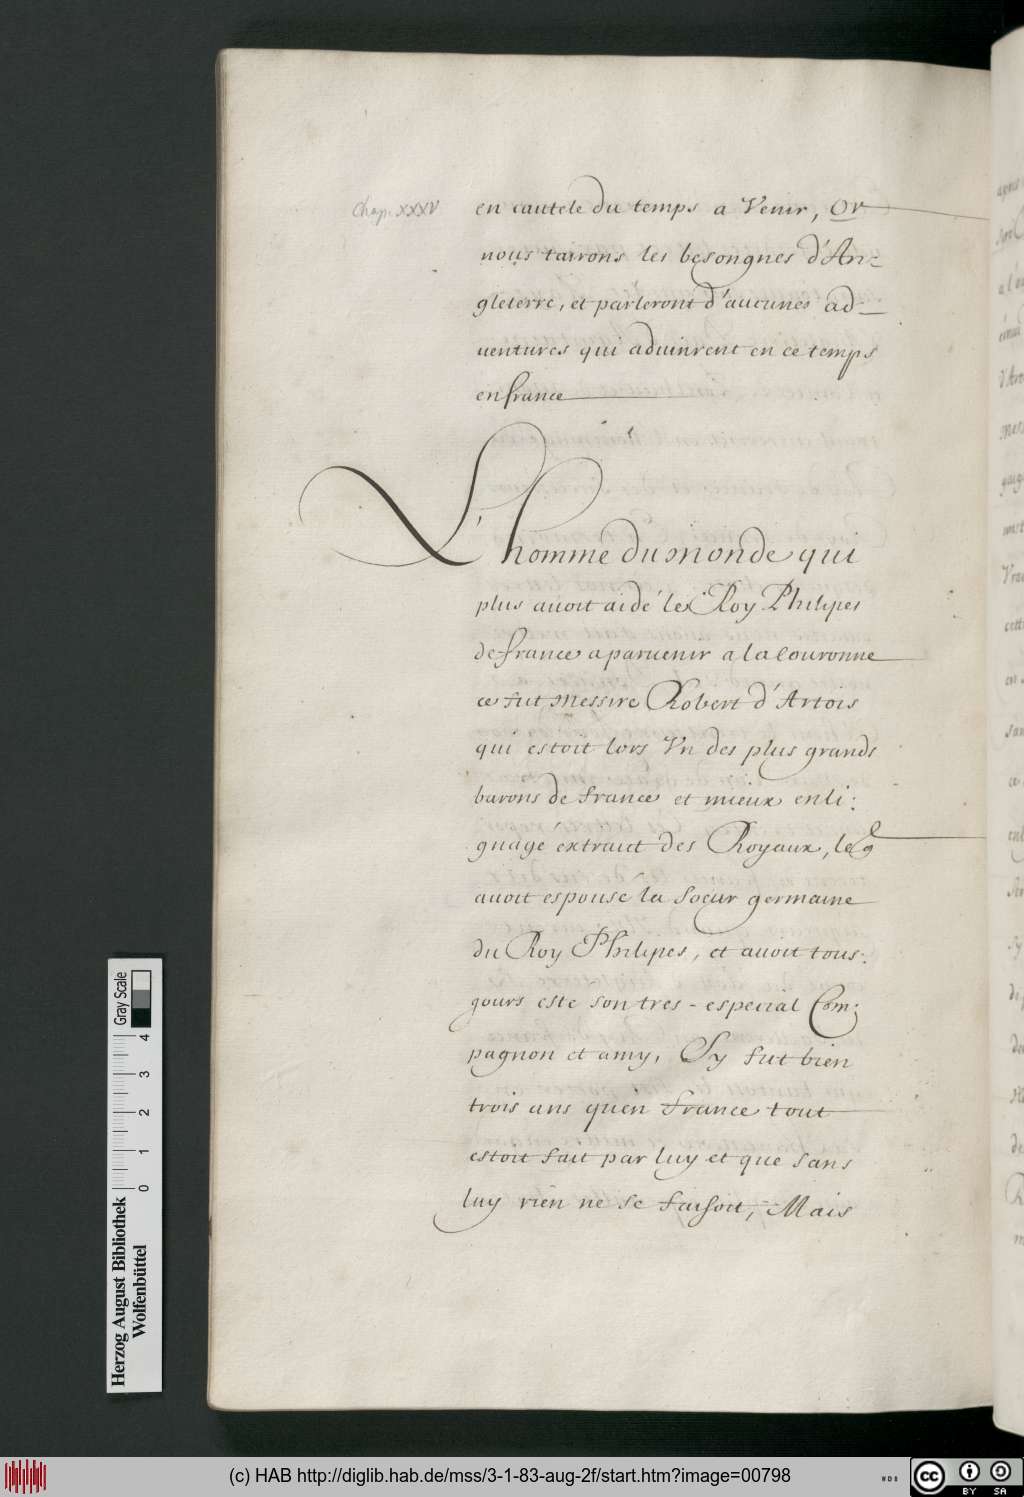 Chap. XXXV
en cautele du temps a Venir, Or
nous tairons les besongnes d'An-
gleterre, et parleront d'aucunes ad-
uentures qui aduinrent en ce temps
en france
L'homme du monde qui
plus auoit aidé le Roy Philipes
de france a paruenir a la Couronne
ce fut Messire Robert d'Artois
qui estoit lors Vn des plus grands
barons de france et mieux en li:
gnage extrait des Royaux, le
auoit espouse la Soeur germaine
du Roy Philipes, et auoit tous:
jours este son tres-especial Com:
pagnon et amy, Sy fut bien
trois ans quen france tout
estoit fait par luy et que sans
luy rien ne se faisoit, Mais
Gray Scale
4
3
2
1
0
Herzog August Bibliothek
Wolfenbüttel
(c) HAB http://diglib.hab.de/mss/3-1-83-aug-2f/start.htm?image=00798
WDB
cc
BY SA